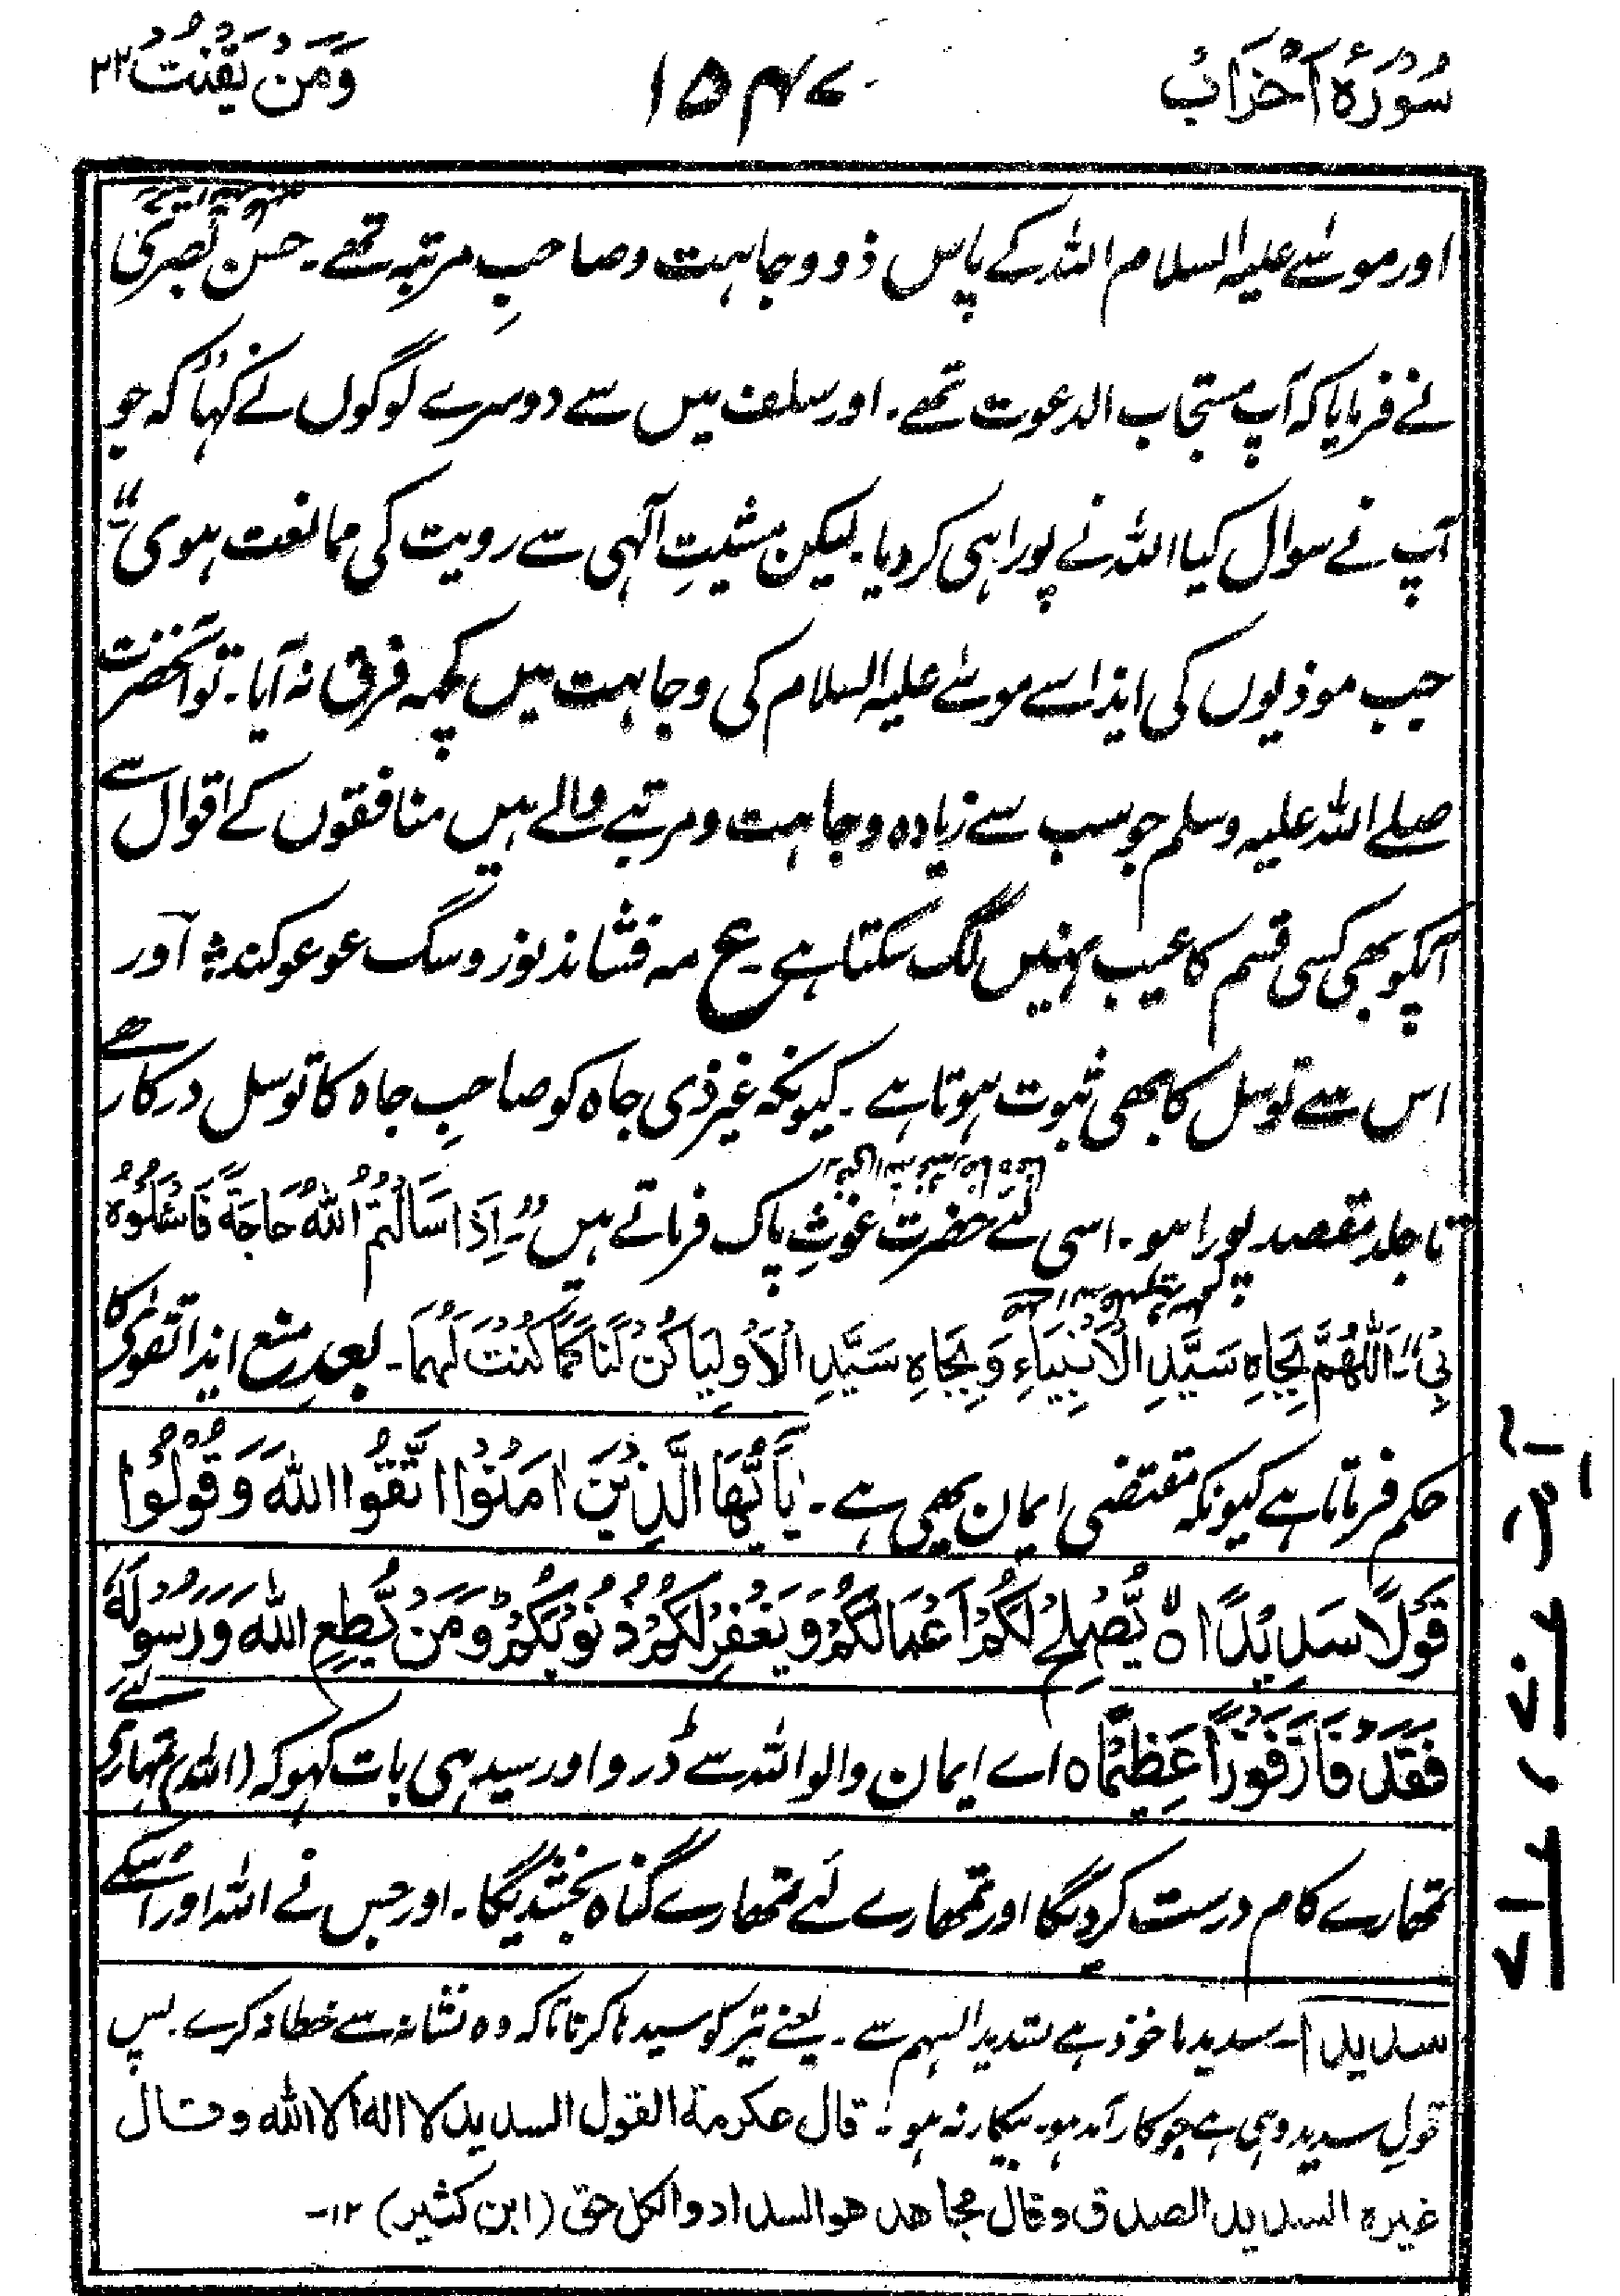 سُوْرَۂ اَحْزَابْ
۱۵۴۷
وَمَنْ يَقْنُتْ ۲۲
اور موسےٰ علیہ السلام اللہ کے پاس ذو وجاہت وصاحبِ مرتبہ تھے۔ حسن بصریؒ
نے فرمایا کہ آپ مستجاب الدعوت تھے۔ اور سلف میں سے دوسرے لوگوں نے کہا "کہ جو
آپ نے سوال کیا اللہ نے پورا ہی کر دیا۔ لیکن مشیتِ آلہی سے رویت کی ممانعت ہوی"
جب موذیوں کی ایذا سے موسےٰ علیہ السلام کی وجاہت میں کچھہ فرق نہ آیا۔ تو آنحضرت
صلے اللہ علیہ وسلم جو سب سے زیادہ وجاہت ومرتبے والے ہیں منافقوں کے اقوال سے
آپکو بھی کسی قسم کا عیب نہیں لگ سکتا ہے۔ ع مہ فشاند نور وسگ عوعو کند ؞ آور
اس سے توسل کا بھی ثبوت ہوتا ہے۔ کیونکہ غیر ذی جاہ کو صاحبِ جاہ کا توسل درکار ہے
تا جلد مقصد پورا ہو۔ اسی لئے حضرت غوثِ پاک فرماتے ہیں "۔ اِذَا سَاَلْتُمُ اللّٰهَ حَاجَةً فَاسْئَلُوْهُ
بِيْ"۔ اَللّٰهُمَّ بِجَاهِ سَيِّدِ الْاَنْبِيَاءِ وَبِجَاهِ سَيِّدِ الْاَوْلِيَا كُنْ لَنَا كَمَا كُنْتَ لَهُمَا۔ بعد منع ایذا تقوی کا
حکم فرماتا ہے کیونکہ مقتضی ایمان یہی ہے۔ يٰۤاَيُّهَا الَّذِيْنَ اٰمَنُوا اتَّقُوا اللّٰهَ وَقُوْلُوْا
قَوْلًا سَدِيْدًا ۙ يُّصْلِحْ لَكُمْ اَعْمَالَكُمْ وَيَغْفِرْ لَكُمْ ذُنُوْبَكُمْ ؕ وَمَنْ يُّطِعِ اللّٰهَ وَرَسُوْلَهٗ
فَقَدْ فَازَ فَوْزًا عَظِيْمًا ہ اے ایمان والو اللہ سے ڈرو اور سیدہی بات کہو کہ (اللہ) تمہاری لئے
تمھارے کام درست کردیگا اور تمھارے لئے تمھارے گناہ بخشدیگا۔ اور جس نے اللہ اور اسکے
سدیدا۔ سدید ماخوذ ہے تسدید السہم سے۔ یعنے تیر کو سیدہا کرنا تا کہ وہ نشانہ سے خطا نہ کرے۔ پس
قول سدید وہی ہے جو کارآمد ہو بیکار نہ ہو۔ قال عكرمة القول السديد لا اله الا الله وقال
غيره السديد الصدق وقال مجاهد هو السداد والكل حق (ابن كثير) ۱۲۔